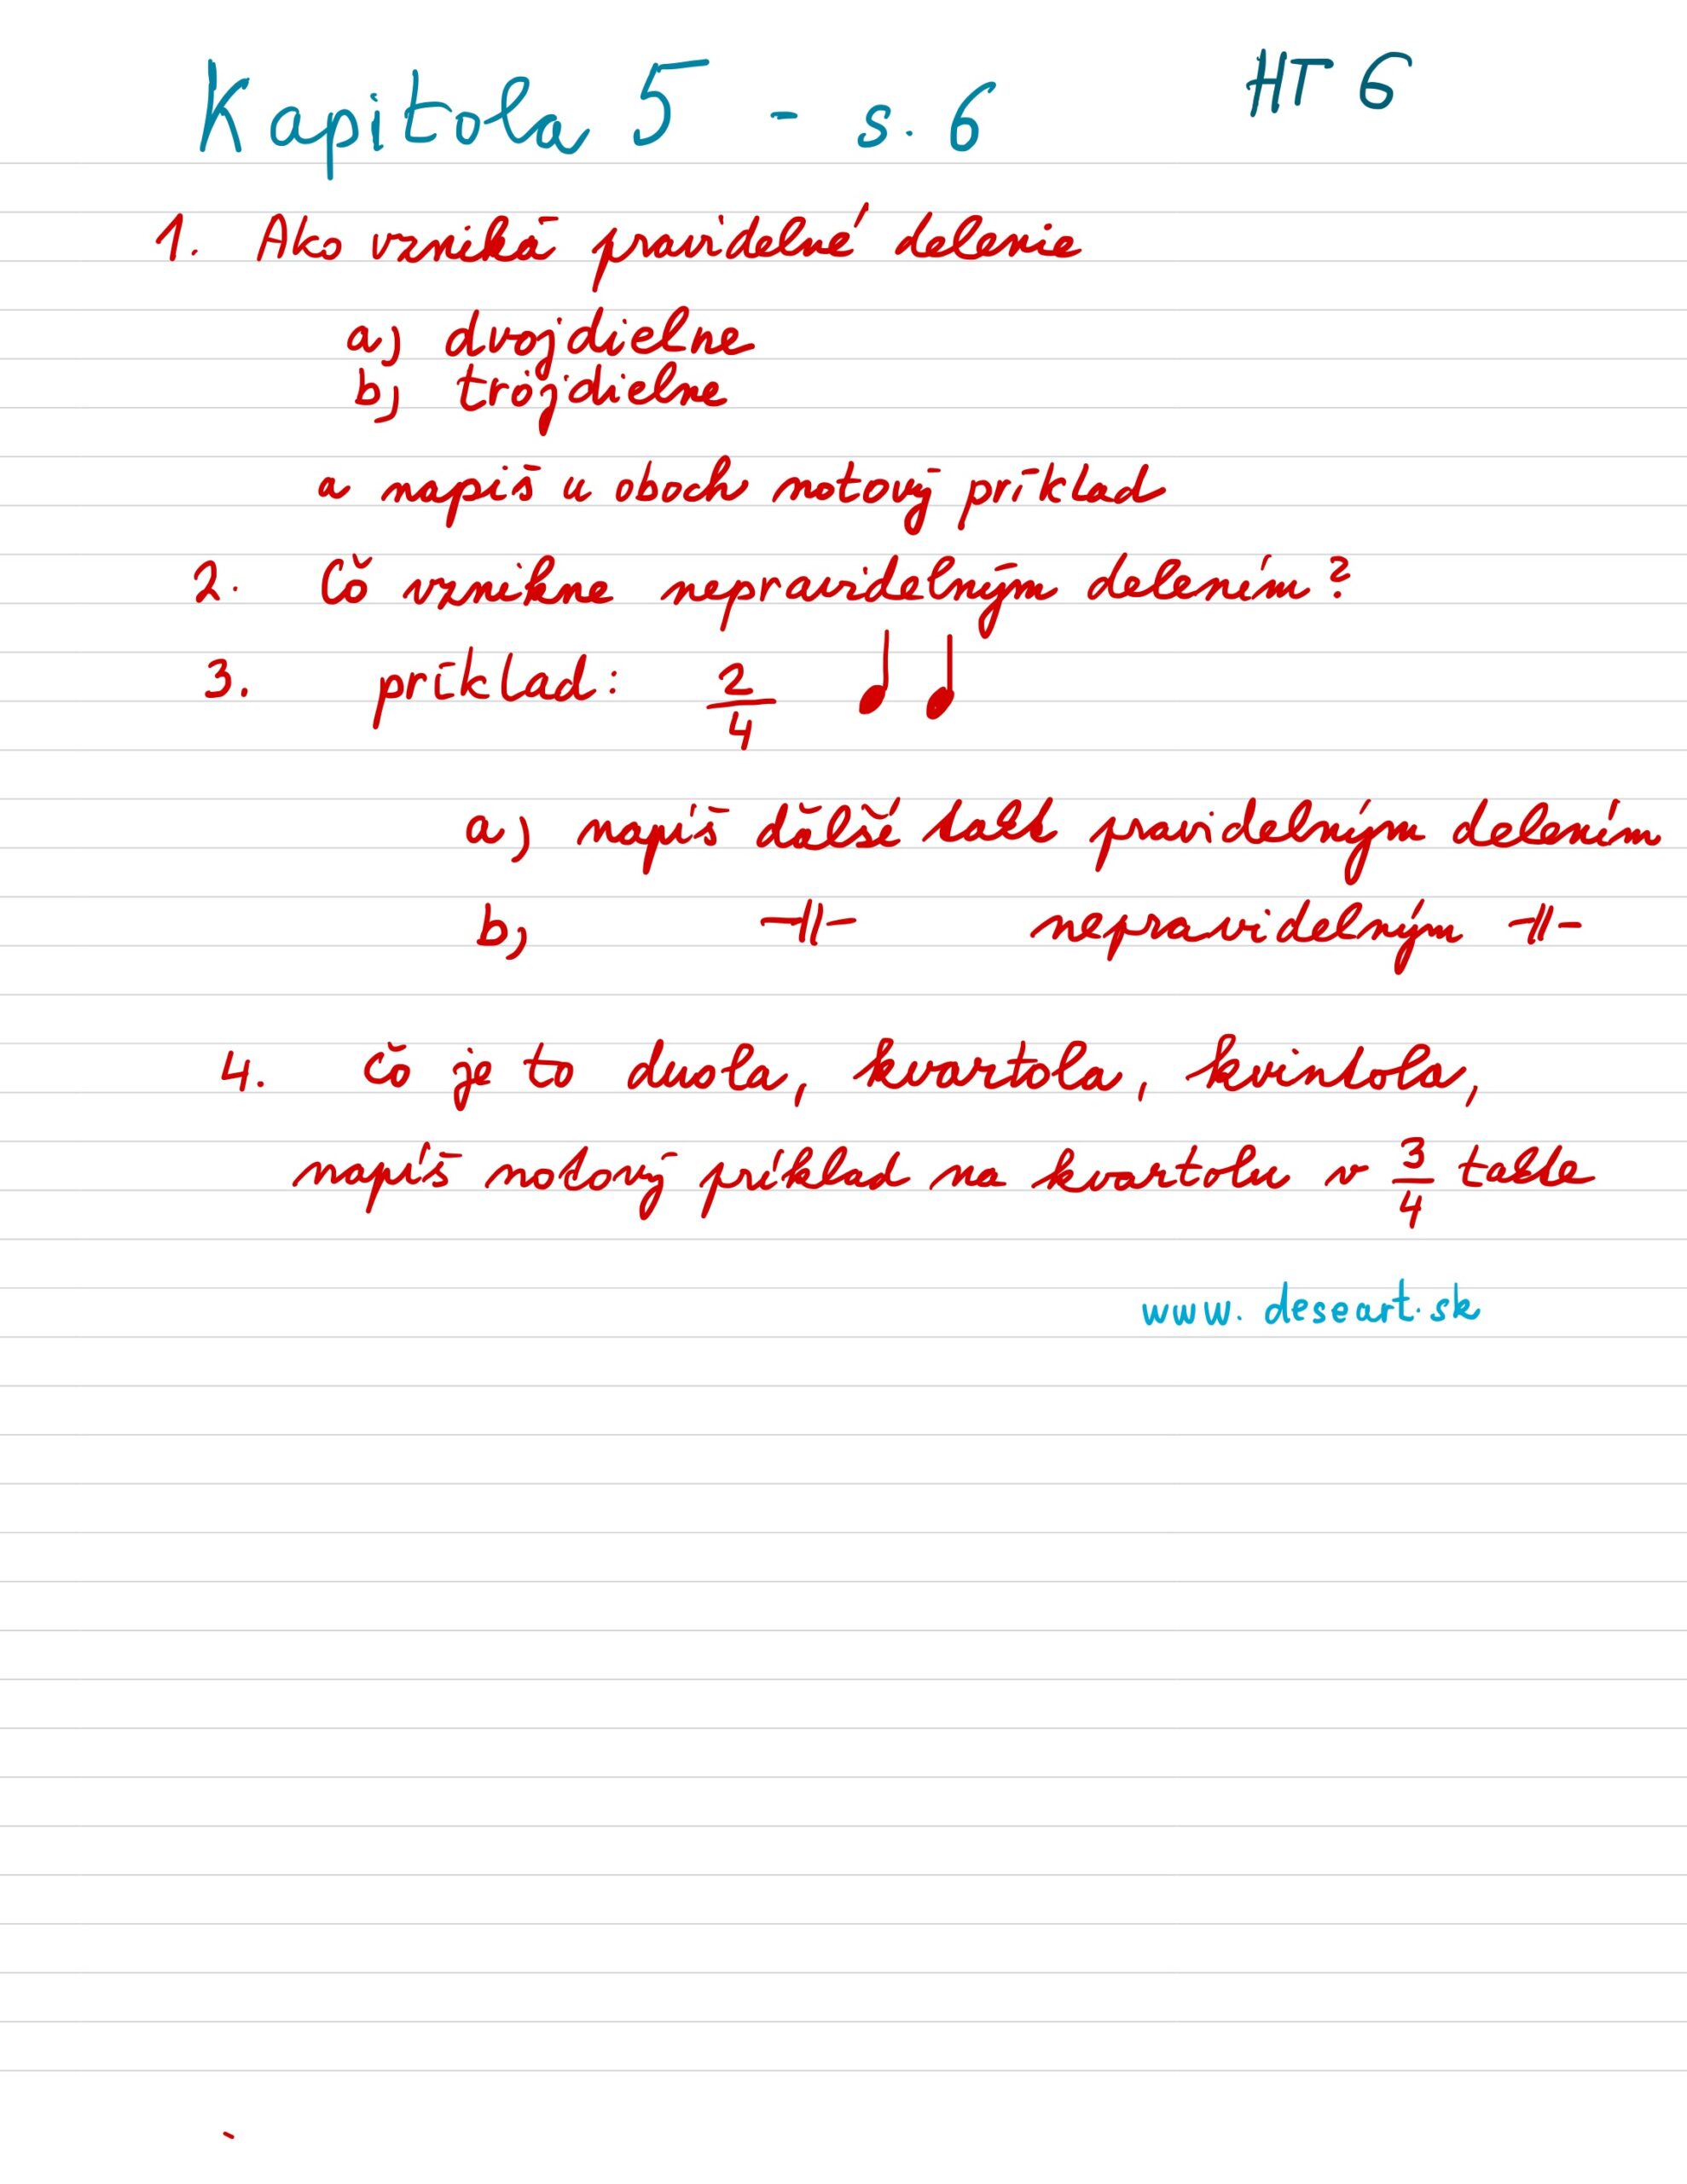 Kapitola 5 - s. 6
HT 6
1. Ako vzniká pravidelné delenie
a) dvojdielne
b) trojdielne
a napíš u oboch notový príklad
2. Čo vznikne nepravidelným delením?
3. príklad: 2/4 ♩ ♩
a) napíš ďalší takt pravidelným delením
b) -//- nepravidelným -//-
4. čo je to duola, kvartola, kvintola,
napíš notový príklad na kvartolu v 3/4 takte
www.deseart.sk